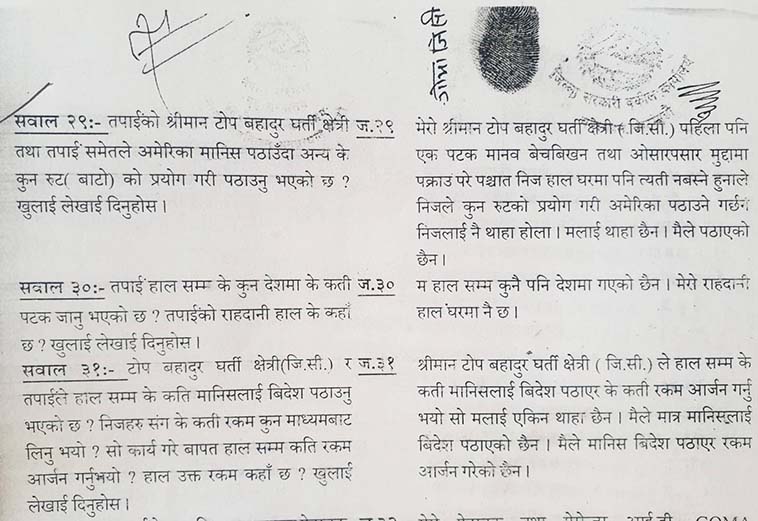 गोमा जि सि
जिल्ला सरकारी वकील कार्यालय
सवाल २९:- तपाईको श्रीमान टोप बहादुर घर्ती क्षेत्री
तथा तपाई समेतले अमेरिका मानिस पठाउँदा अन्य के
कुन रुट( बाटो) को प्रयोग गरी पठाउनु भएको छ ?
खुलाई लेखाई दिनुहोस ।
ज.२९
मेरो श्रीमान टोप बहादुर घर्ती क्षेत्री (.जि.सी.) पहिला पनि
एक पटक मानव बेचबिखन तथा ओसारपसार मुद्दामा
पक्राउ परे पश्चात निज हाल घरमा पनि त्यती नबस्ने हुनाले
निजले कुन रुटको प्रयोग गरी अमेरिका पठाउने गर्छन
निजलाई नै थाहा होला । मलाई थाहा छैन । मैले पठाएको
छैन ।
सवाल ३०:- तपाई हाल सम्म के कुन देशमा के कती
पटक जानु भएको छ ? तपाईको राहदानी हाल के कहाँ
छ ? खुलाई लेखाई दिनुहोस ।
ज.३०
म हाल सम्म कुनै पनि देशमा गएको छैन । मेरो राहदानी
हाल घरमा नै छ ।
सवाल ३१:- टोप बहादुर घर्ती क्षेत्री(जि.सी.) र
तपाईले हाल सम्म के कति मानिसलाई बिदेश पठाउनु
भएको छ ? निजहरु संग के कती रकम कुन माध्यमबाट
लिनु भयो ? सो कार्य गरे बापत हाल सम्म कति रकम
आर्जन गर्नुभयो ? हाल उक्त रकम कहाँ छ ? खुलाई
लेखाई दिनुहोस ।
ज.३१
श्रीमान टोप बहादुर घर्ती क्षेत्री ( जि.सी.) ले हाल सम्म के
कती मानिसलाई बिदेश पठाएर के कती रकम आर्जन गर्नु
भयो सो मलाई एकिन थाहा छैन । मैले मात्र मानिसलाई
बिदेश पठाएको छैन । मैले मानिस बिदेश पठाएर रकम
आर्जन गरेको छैन ।